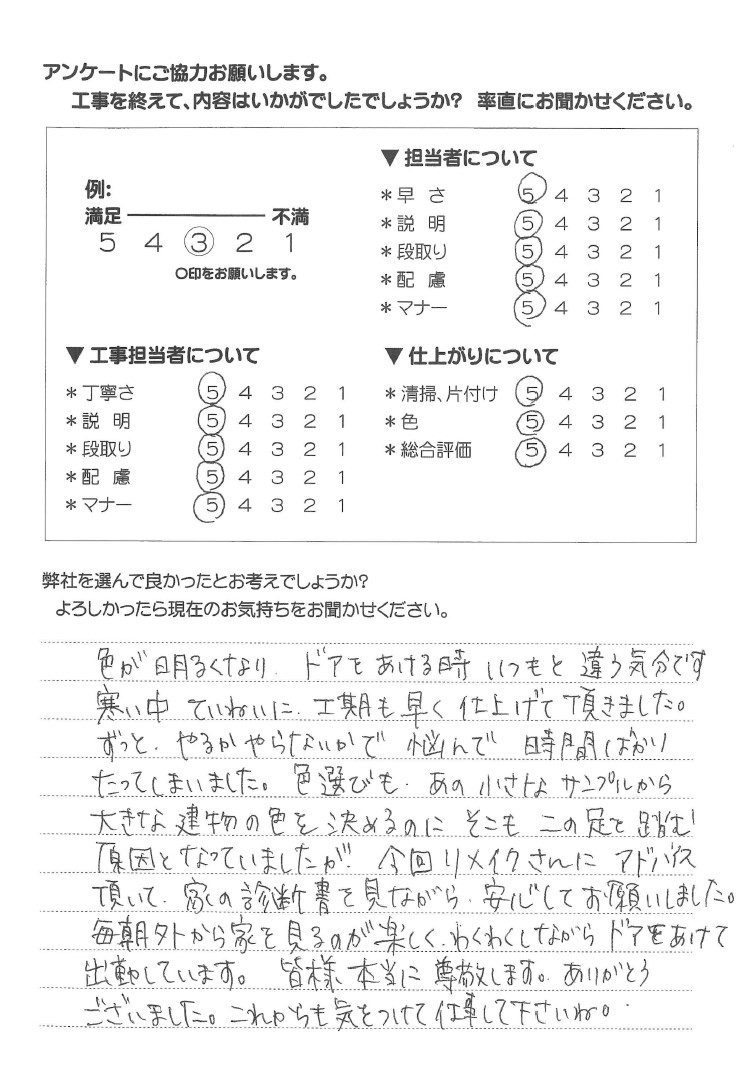 アンケートにご協力お願いします。
工事を終えて、内容はいかがでしたでしょうか? 率直にお聞かせください。
例:
満足 不満
5 4 3 2 1
○印をお願いします。
▼担当者について
*早 さ 5 4 3 2 1
*説 明 5 4 3 2 1
*段取り 5 4 3 2 1
*配 慮 5 4 3 2 1
*マナー 5 4 3 2 1
▼工事担当者について
*丁寧さ 5 4 3 2 1
*説 明 5 4 3 2 1
*段取り 5 4 3 2 1
*配 慮 5 4 3 2 1
*マナー 5 4 3 2 1
▼仕上がりについて
*清掃、片付け 5 4 3 2 1
*色 5 4 3 2 1
*総合評価 5 4 3 2 1
弊社を選んで良かったとお考えでしょうか?
よろしかったら現在のお気持ちをお聞かせください。
色が明るくなり、ドアをあける時 いつもと 違う気分です
寒い中 ていねいに、工期も早く仕上げて頂きました。
ずっと、やるかやらないかで 悩んで 時間ばかり
たってしまいました。色選びも、あの小さなサンプルから
大きな建物の色を決めるのに そこも 二の足を踏む
原因となっていましたが、今回リメイクさんに アドバイス
頂いて、家の診断書を見ながら、安心してお願いしました。
毎朝外から家を見るのが楽しく、わくわくしながらドアをあけて
出勤しています。 皆様 本当に尊敬します。ありがとう
ございました。これからも気をつけて仕事して下さいね。